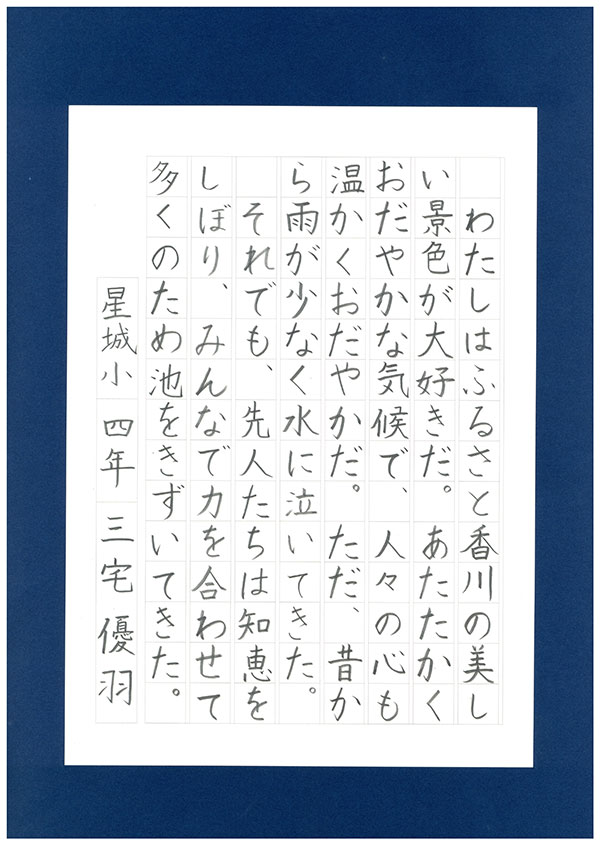 わたしはふるさと香川の美し
い景色が大好きだ。あたたかく
おだやかな気候で、人々の心も
温かくおだやかだ。ただ、昔か
ら雨が少なく水に泣いてきた。
それでも、先人たちは知恵を
しぼり、みんなで力を合わせて
多くのため池をきずいてきた。
星城小 四年 三宅 優羽